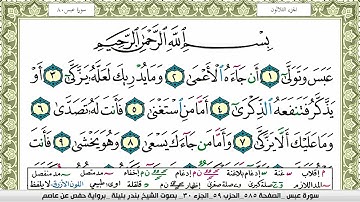 الجزء الثلاثون
سورة عبس ٨٠
بِسْمِ اللَّهِ الرَّحْمَٰنِ الرَّحِيمِ
عَبَسَ وَتَوَلَّىٰٓ ١ أَن جَآءَهُ الْأَعْمَىٰ ٢ وَمَا يُدْرِيكَ لَعَلَّهُۥ يَزَّكَّىٰٓ ٣ أَوْ
يَذَّكَّرُ فَتَنفَعَهُ الذِّكْرَىٰٓ ٤ أَمَّا مَنِ اسْتَغْنَىٰ ٥ فَأَنتَ لَهُۥ تَصَدَّىٰ ٦
وَمَا عَلَيْكَ أَلَّا يَزَّكَّىٰ ٧ وَأَمَّا مَن جَآءَكَ يَسْعَىٰ ٨ وَهُوَ يَخْشَىٰ ٩ فَأَنتَ
سورة عبس - الصفحة ٥٨٥ - الحزب ٥٩ - الجزء ٣٠ - بصوت الشيخ بندر بليلة - برواية حفص عن عاصم